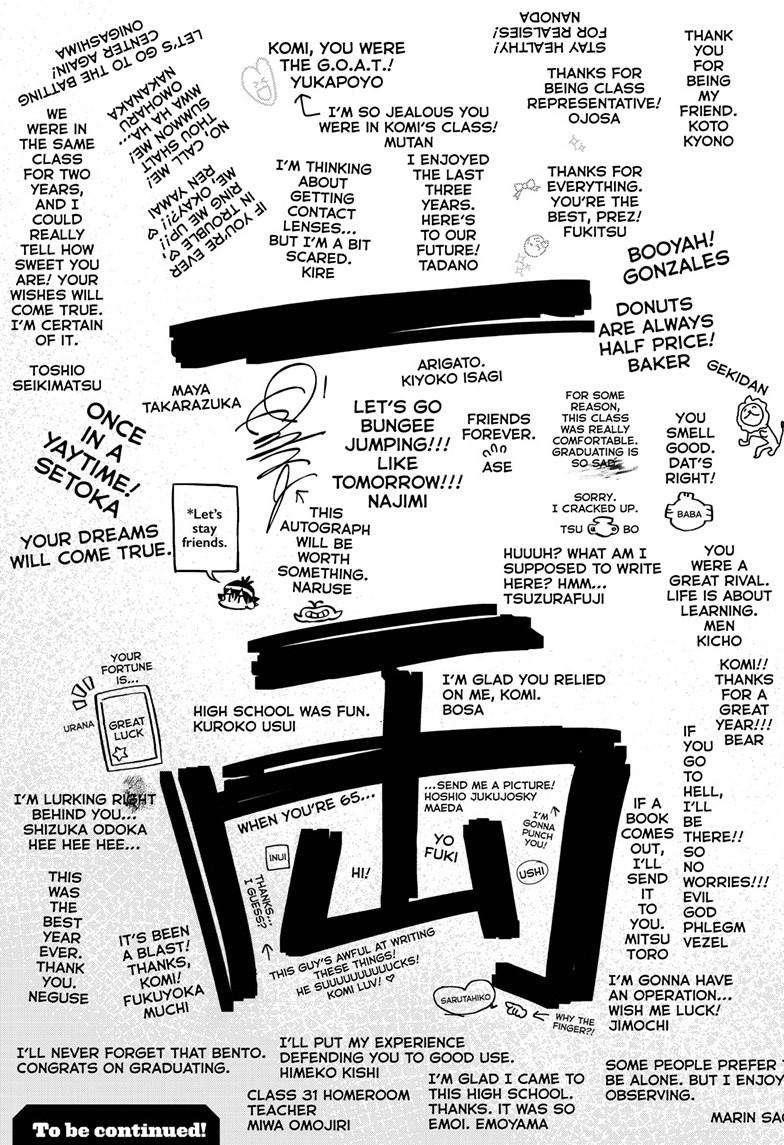 LET'S GO TO THE BATTING
CENTER AGAIN!
ONIGASHIMA
NO, CALL ME!
THOU SHALT
SUMMON ME!
MWA HA HA...
OMOHARU
NAKANAKA
KOMI, YOU WERE
THE G.O.A.T.!
YUKAPOYO
I'M SO JEALOUS YOU
WERE IN KOMI'S CLASS!
MUTAN
STAY HEALTHY!
FOR REALSIES!
NANODA
THANKS FOR
BEING CLASS
REPRESENTATIVE!
OJOSA
THANK
YOU
FOR
BEING
MY
FRIEND.
KOTO
KYONO
WE
WERE IN
THE SAME
CLASS
FOR TWO
YEARS,
AND I
COULD
REALLY
TELL HOW
SWEET YOU
ARE! YOUR
WISHES WILL
COME TRUE.
I'M CERTAIN
OF IT.
TOSHIO
SEIKIMATSU
IF YOU'RE EVER
IN TROUBLE,
RING ME UP!!
ME, OKAY?!
REN YAMAI
I'M THINKING
ABOUT
GETTING
CONTACT
LENSES...
BUT I'M A BIT
SCARED.
KIRE
I ENJOYED
THE LAST
THREE
YEARS.
HERE'S
TO OUR
FUTURE!
TADANO
THANKS FOR
EVERYTHING.
YOU'RE THE
BEST, PREZ!
FUKITSU
BOOYAH!
GONZALES
DONUTS
ARE ALWAYS
HALF PRICE!
BAKER
GEKIDAN
MAYA
TAKARAZUKA
ARIGATO.
KIYOKO ISAGI
ONCE
IN A
YAYTIME!
SETOKA
LET'S GO
BUNGEE
JUMPING!!!
LIKE
TOMORROW!!!
NAJIMI
FRIENDS
FOREVER.
ASE
FOR SOME
REASON,
THIS CLASS
WAS REALLY
COMFORTABLE.
GRADUATING IS
SO SAD.
SORRY.
I CRACKED UP.
TSU BO
YOU
SMELL
GOOD.
DAT'S
RIGHT!
BABA
YOUR DREAMS
WILL COME TRUE.
*Let's
stay
friends.
THIS
AUTOGRAPH
WILL BE
WORTH
SOMETHING.
NARUSE
HUUUH? WHAT AM I
SUPPOSED TO WRITE
HERE? HMM...
TSUZURAFUJI
YOU
WERE A
GREAT RIVAL.
LIFE IS ABOUT
LEARNING.
MEN
KICHO
YOUR
FORTUNE
IS...
URANA
GREAT
LUCK
HIGH SCHOOL WAS FUN.
KUROKO USUI
I'M GLAD YOU RELIED
ON ME, KOMI.
BOSA
KOMI!!
THANKS
FOR A
GREAT
YEAR!!!
BEAR
I'M LURKING RIGHT
BEHIND YOU...
SHIZUKA ODOKA
HEE HEE HEE...
WHEN YOU'RE 65...
...SEND ME A PICTURE!
HOSHIO JUKUJOSKY
MAEDA
I'M
GONNA
PUNCH
YOU!
USHI
INUI
HI!
YO
FUKI
THANKS...
I GUESS?
THIS GUY'S AWFUL AT WRITING
THESE THINGS!
HE SUUUUUUUUUCKS!
KOMI LUV!
IF A
BOOK
COMES
OUT,
I'LL
SEND
IT
TO
YOU.
MITSU
TORO
IF
YOU
GO
TO
HELL,
I'LL
BE
THERE!!
SO
NO
WORRIES!!!
EVIL
GOD
PHLEGM
VEZEL
THIS
WAS
THE
BEST
YEAR
EVER.
THANK
YOU.
NEGUSE
IT'S BEEN
A BLAST!
THANKS,
KOMI!
FUKUYOKA
MUCHI
SARUTAHIKO
WHY THE
FINGER?!
I'M GONNA HAVE
AN OPERATION...
WISH ME LUCK!
JIMOCHI
I'LL NEVER FORGET THAT BENTO.
CONGRATS ON GRADUATING.
I'LL PUT MY EXPERIENCE
DEFENDING YOU TO GOOD USE.
HIMEKO KISHI
CLASS 31 HOMEROOM
TEACHER
MIWA OMOJIRI
I'M GLAD I CAME TO
THIS HIGH SCHOOL.
THANKS. IT WAS SO
EMOI. EMOYAMA
SOME PEOPLE PREFER
BE ALONE. BUT I ENJOY
OBSERVING.
MARIN
To be continued!